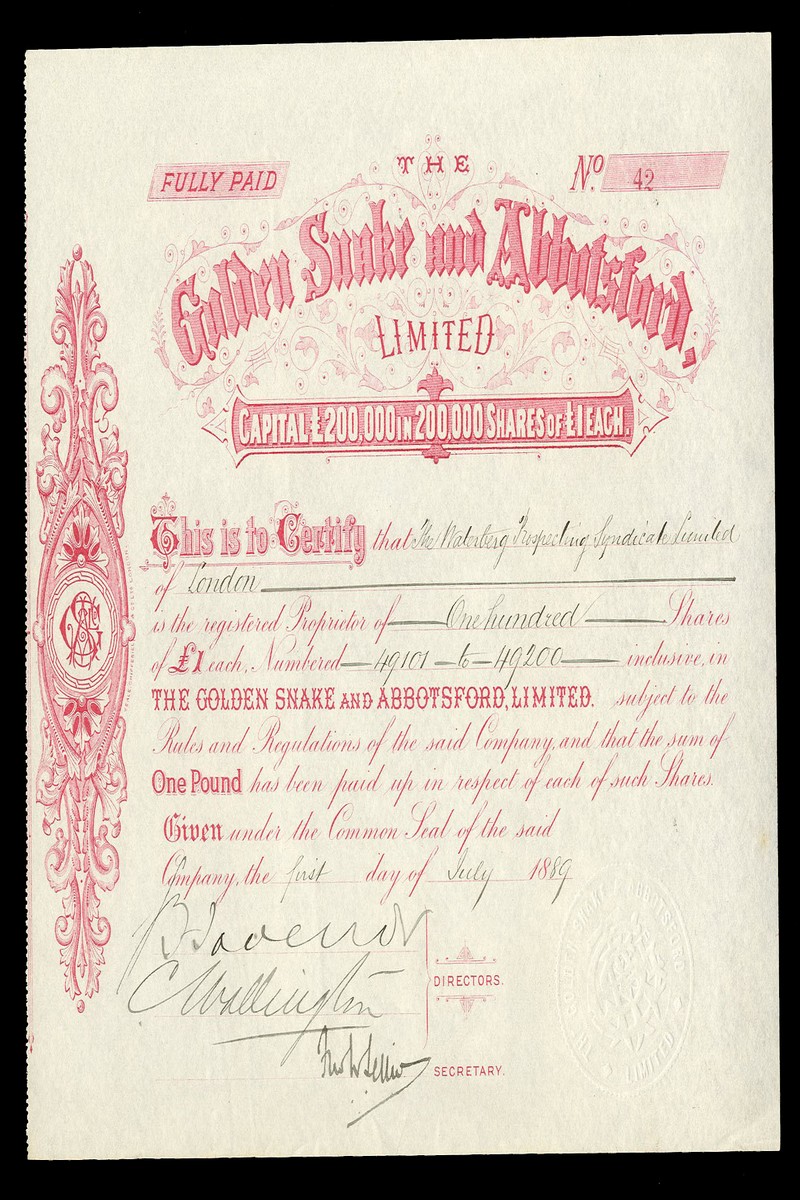 FULLY PAID
THE
No. 42
Golden Snake and Abbotsford,
LIMITED
CAPITAL £200,000 IN 200,000 SHARES OF £1 EACH.
This is to Certify that The Waterberg Prospecting Syndicate Limited
of London
is the registered Proprietor of One hundred Shares
of £1 each, Numbered 49101 to 49200 inclusive, in
THE GOLDEN SNAKE AND ABBOTSFORD, LIMITED. subject to the
Rules and Regulations of the said Company, and that the sum of
One Pound has been paid up in respect of each of such Shares.
Given under the Common Seal of the said
Company, the first day of July 1889
C Wallington
DIRECTORS.
SECRETARY.
GOLDEN SNAKE & ABBOTSFORD
LIMITED